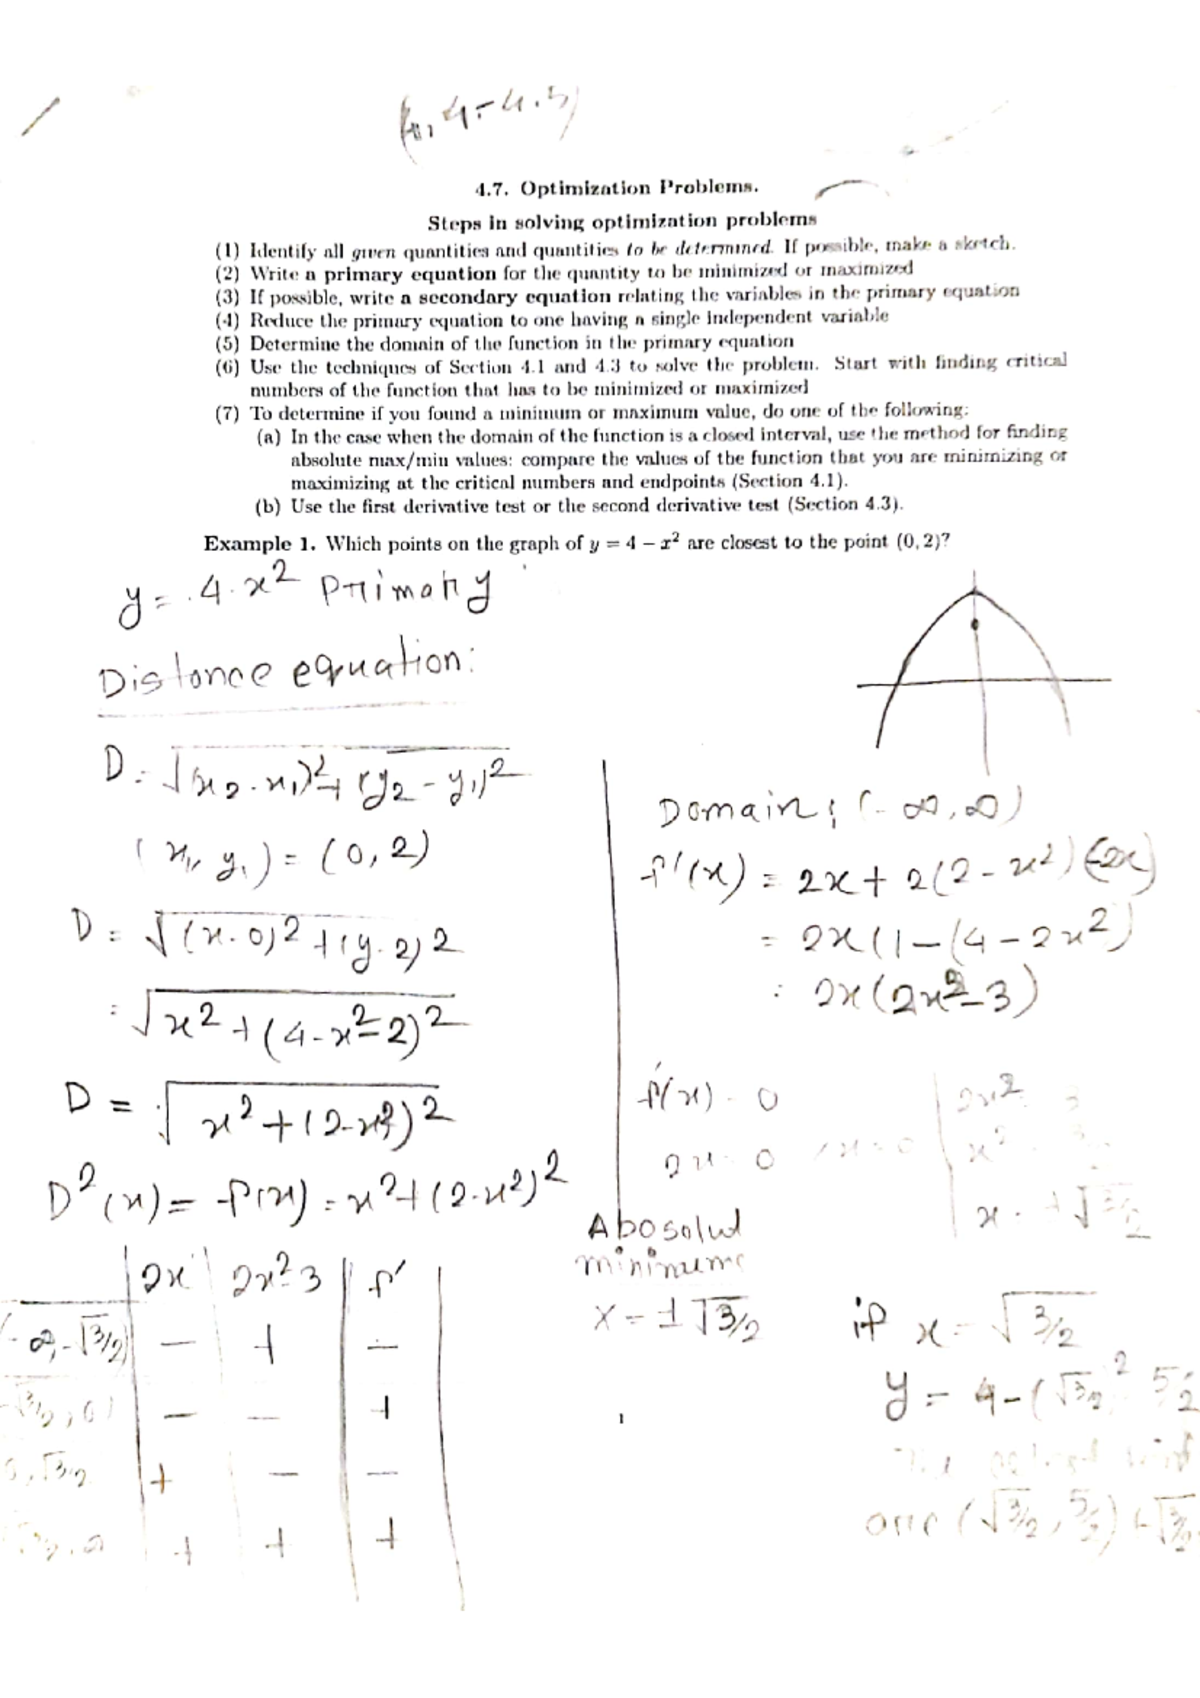 4.7. Optimization Problems.
Steps in solving optimization problems
(1) Identify all given quantities and quantities to be determined. If possible, make a sketch.
(2) Write a primary equation for the quantity to be minimized or maximized
(3) If possible, write a secondary equation relating the variables in the primary equation
(4) Reduce the primary equation to one having a single independent variable
(5) Determine the domain of the function in the primary equation
(6) Use the techniques of Section 4.1 and 4.3 to solve the problem. Start with finding critical
numbers of the function that has to be minimized or maximized
(7) To determine if you found a minimum or maximum value, do one of the following:
(a) In the case when the domain of the function is a closed interval, use the method for finding
absolute max/min values: compare the values of the function that you are minimizing or
maximizing at the critical numbers and endpoints (Section 4.1).
(b) Use the first derivative test or the second derivative test (Section 4.3).
Example 1. Which points on the graph of y = 4 − x² are closest to the point (0, 2)?
y = 4 - x² Primary
Distance equation:
D = √(x₂ - x₁)² + (y₂ - y₁)²
(x₁, y₁) = (0, 2)
D = √(x - 0)² + (y - 2)²
= √x² + (4 - x² - 2)²
D = √x² + (2 - x²)²
D²(x) = f(x) = x² + (2 - x²)²
2x 2x² - 3 f'
(-∞, -√3/2) − + −
− − +
+ − −
+ + +
Domain: (-∞, ∞)
f'(x) = 2x + 2(2 - x²)(-2x)
= 2x(1 - (4 - 2x²)
= 2x(2x² - 3)
f'(x) = 0
2x = 0 x = 0
2x² = 3
x = ±√3/2
Abosolut
x = ±√3/2
if x = √3/2
y = 4 - (√3/2)² = 5/2
1